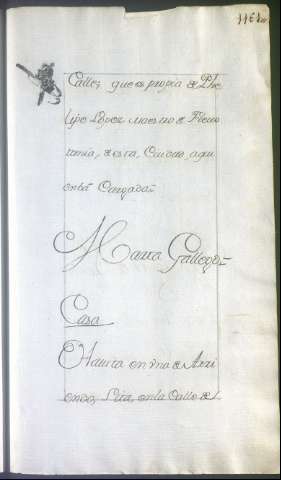 Calles, que es propia de Phe
lipe Lopez Maestro de
de esta, Ciudad, aqui
está Cargada
Maria Gallego
Casa
Havita en una de Arri
endo, Sita, en la Calle de